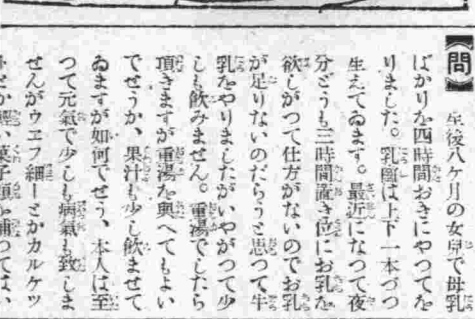 【問】 生後八ケ月の女兒で母乳
ばかりを四時間おきにやつてを
りました。乳齒は上下一本づつ
生えてゐます。最近になつて夜
分どうも三時間置き位にお乳を
欲しがつて仕方がないのでお乳
が足りないのだらうと思つて牛
乳をやりましたがいやがつて少
しも飲みません。重湯でしたら
頂きますが重湯を與へてもよい
でせうか、果汁も少し飲ませて
ゐますが如何でせう、本人は至
つて元氣で少しも病氣も致しま
せんがウエフ細ーとかカルケツ
い菓子類を補つてはい